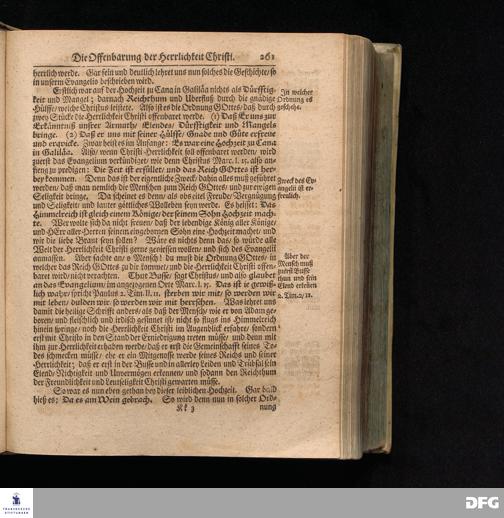 Die Offenbarung der Herrlichkeit Christi. 261
herrlich werde. Gar fein und deutlich lehret uns nun solches die Geschichte/ so
in unserm Evangelio beschrieben wird.
Erstlich war auf der Hochzeit zu Cana in Galiläa nichts als Dürfftig-
keit und Mangel; darnach Reichthum und Uberfluß durch die gnädige
Hülffe/ welche Christus leistete. Also ist es die Ordnung GOttes/ daß durch
zwey Stücke die Herrlichkeit Christi offenbaret wird: (1) Daß Er uns zur
Erkänntniß unsrer Armuth/ Elendes/ Dürfftigkeit und Mangels
bringe. (2) Daß er uns mit seiner Hülffe/ Gnade und Güte erfreue
und erqvicke. Zwar heist es im Anfange: Es war eine Hochzeit zu Cana
in Galiläa. Also/ wenn Christi Herrlichkeit soll offenbaret werden/ wird
zuerst das Evangelium verkündiget/ wie denn Christus Marc. I. 15. also an-
fieng zu predigen: Die Zeit ist erfüllet/ und das Reich GOttes ist her-
bey kommen. Denn das ist der eigentliche Zweck/ dahin alles muß geführet
werden/ daß man nemlich die Menschen zum Reich GOttes/ und zur ewigen
Seligkeit bringe. Da scheinet es denn/ als obs eitel Freude/ Vergnügung
und Seligkeit/ und lauter göttliches Wolleben seyn werde. Es heisset: Das
Himmelreich ist gleich einem Könige/ der seinem Sohn Hochzeit mach-
te. Wer wolte sich da nicht freuen/ daß der lebendige König aller Könige/
und HErr aller Herren seinem eingebornen Sohn eine Hochzeit machet/ und
wir die liebe Braut seyn sollen? Wäre es nichts denn das/ so würde alle
Welt der Herrlichkeit Christi gerne geniessen wollen/ und sich des Evangelii
anmassen. Aber sachte an/ o Mensch! du must die Ordnung GOttes/ in
welcher das Reich GOttes zu dir kommet/ und die Herrlichkeit Christi offen-
baret wird/ nicht verachten. Thut Busse/ sagt Christus/ und also glaubet
an das Evangelium/ im angezogenen Orte Marc. I. 15. Das ist je gewiß-
lich wahr/ spricht Paulus 2. Tim. II. 11. sterben wir mit/ so werden wir
mit leben/ dulden wir/ so werden wir mit herrschen. Was lehret uns
damit die heilige Schrifft anders/ als daß der Mensch/ wie er von Adam ge-
boren/ und fleischlich und irdisch gesinnet ist/ nicht so flugs ins Himmelreich
hinein springe/ noch die Herrlichkeit Christi im Augenblick erfahre/ sondern
erst mit Christo in den Stand der Erniedrigung treten müsse/ und denn mit
ihm zur Herrlichkeit erhaben werde; daß er erst die Gemeinschafft seines To-
des schmecken müsse/ ehe er ein Mitgenosse werde seines Reichs und seiner
Herrlichkeit; daß er erst in der Busse und in allerley Leiden und Trübsal sein
Elend/ Nichtigkeit und Unvermögen erkennen/ und sodann den Reichthum
der Freundlichkeit und Leutseligkeit Christi gewarten müsse.
So war es nun eben gethan bey dieser leiblichen Hochzeit. Gar bald
hieß es; Da es am Wein gebrach. So wird denn nun in solcher Ord-
Kk 3 nung
In welcher
Ordnung es
geschehe.
Zweck des Ev-
angelii ist er-
freulich.
Aber der
Mensch muß
zuerst Busse
thun und sein
Elend erkennen
2. Tim. 2/ 11.
FRANCKESCHE
STIFTUNGEN
DFG